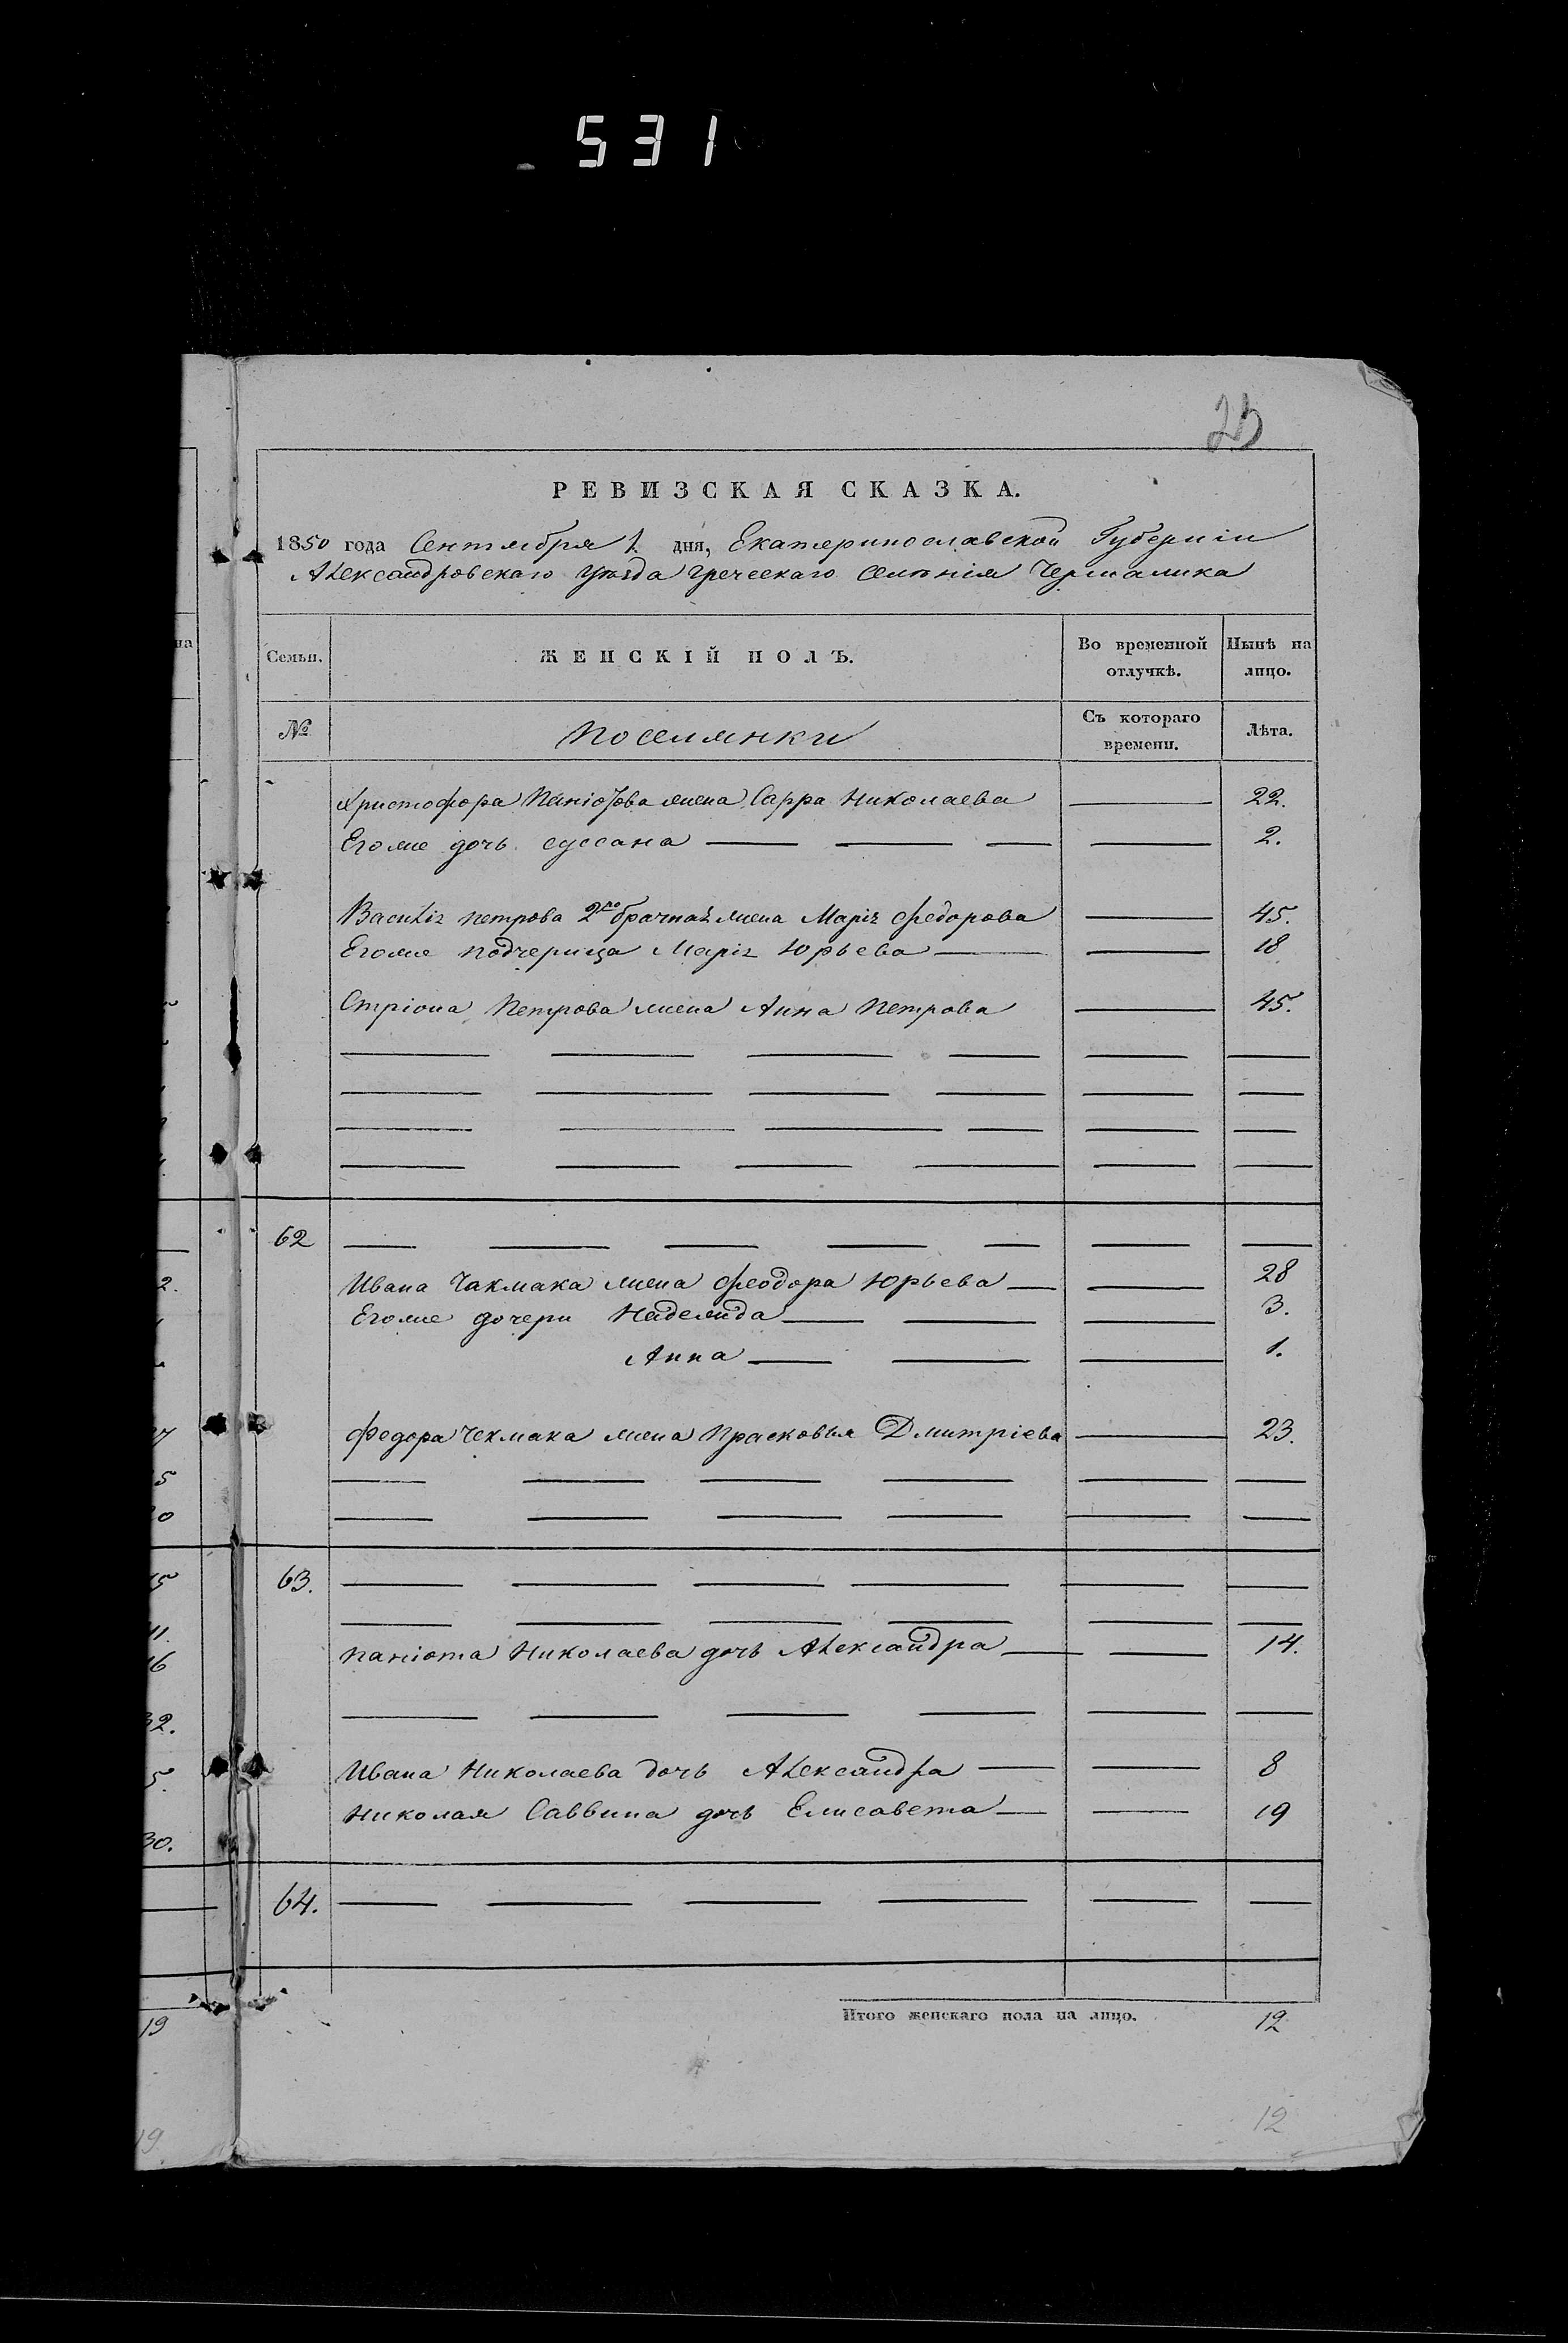 531
25
РЕВИЗСКАЯ СКАЗКА.
1850 года Сентября 1 дня, Екатеринославской Губерніи
Александровскаго Уѣзда Греческаго Селѣнія Чермалика
Семьи. ЖЕНСКІЙ ПОЛЪ. Во временной отлучкѣ. Нынѣ на лицо.
№ Поселянки Съ котораго времени. Лѣта.
Христофора Паніотова жена Сарра Николаева — 22.
Егоже дочь Суссана — 2.
Василія Петрова 2го брачная жена Марія Федорова — 45.
Егоже подчерица Марія Юрьева — 18
Стріона Петрова жена Анна Петрова — 45.
62
Ивана Чакмака жена Феодора Юрьева — 28
Егоже дочери Надежда — 3.
Анна — 1.
Федора Чекмака жена Прасковья Дмитріева — 23.
63.
Паніота Николаева дочь Александра — 14.
Ивана Николаева дочь Александра — 8
Николая Саввина дочь Елисавета — 19
64.
Итого женскаго пола на лицо. 12
12